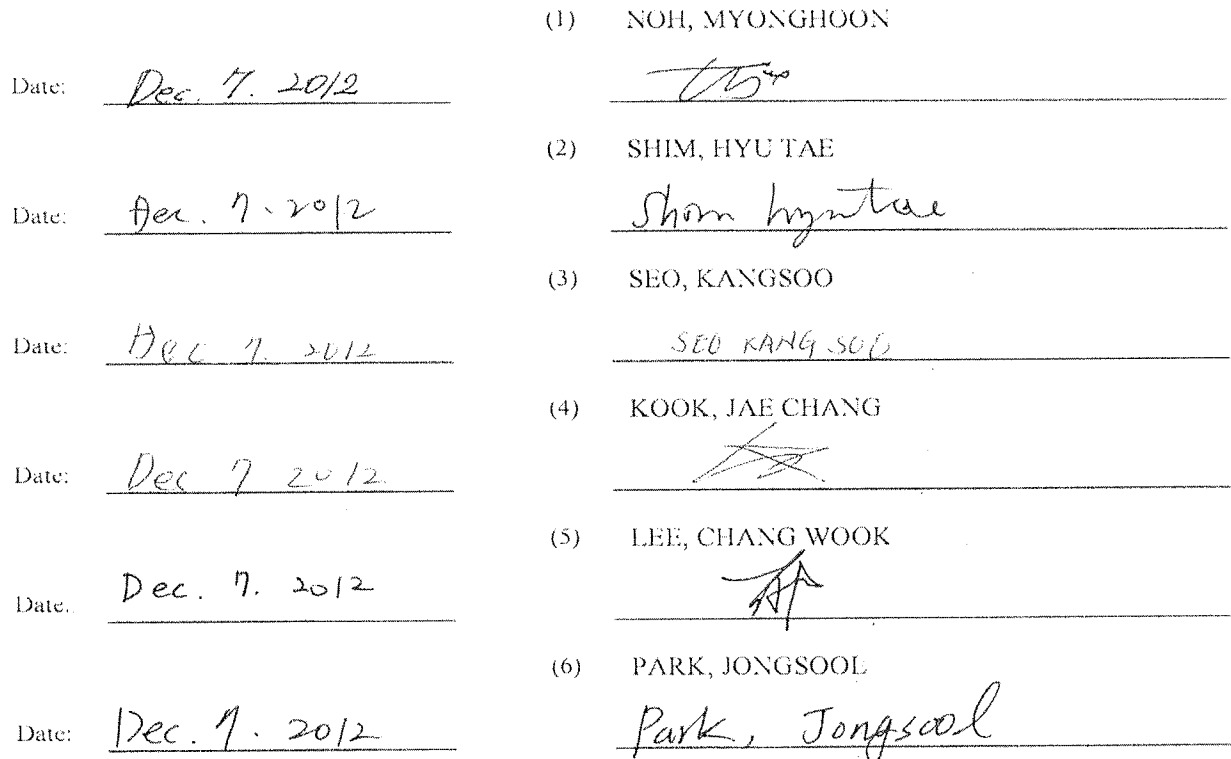 (1) NOH, MYONGHOON
Date: Dec. 7. 2012
(2) SHIM, HYU TAE
Date: Dec. 7. 2012 Shim hyutae
(3) SEO, KANGSOO
Date: Dec 7. 2012 SEO KANG SOO
(4) KOOK, JAE CHANG
Date: Dec 7 2012
(5) LEE, CHANG WOOK
Date: Dec. 7. 2012
(6) PARK, JONGSOOL
Date: Dec. 7. 2012 Park, Jongsool